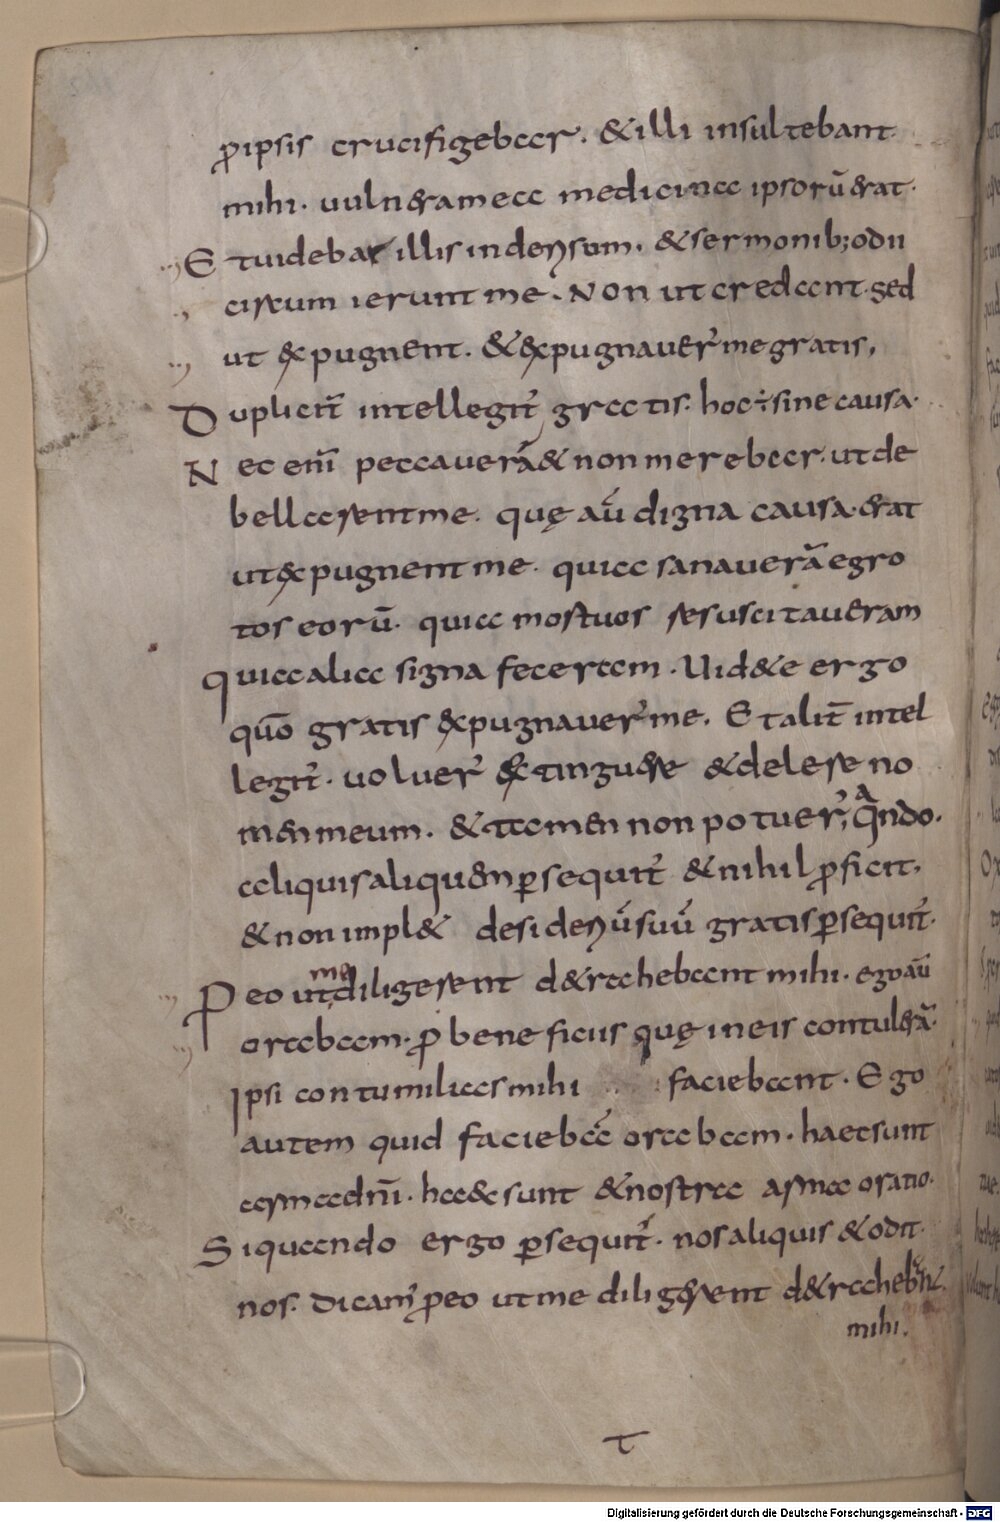 p̄ ipsis crucifigebar. & illi insultebant
mihi. uuln&ramea medicinae ipsorū &rat.
E tuidebar illis indensum. & sermonib; odii
circum ierunt me. Non ut credant. sed
ut expugnent. & expugnauer̄ me gratis,
D uplicit̄ intellegit̄ gratis. hoc ÷ sine causa.
N ec enī peccauerā & non merebar. ut de
bellarent me. quę aū digna causa. &rat
ut expugnent me. quia sanauerā egro
tos eorū. quia mortuos resuscitaueram
quia alia signa feceram. Uid&e ergo
quō gratis expugnauer̄ me. Et alit̄ intel
legit̄. uoluer̄ extingu&re & delere no
men meum. & tamen non potuer̄; qando.
aliquis aliquem persequit̄ & nihil p̄ficit,
& non impl& desideriū suū gratis persequit̄.
P eo ut me diligerent d&rahebant mihi. ego aū
orabam. p̄ beneficiis quę in eis contulerā.
Ipsi contumilias mihi faciebant. Ego
autem quid faciebā orabam. haec sunt
arma dn̄i. haec sunt & nostra arma oratio.
Si quando ergo persequit̄. nos aliquis & odit.
nos. dicam̄ p̄ eo ut me diligerent d&raheb̄n̄t
mihi.
τ
Digitalisierung gefördert durch die Deutsche Forschungsgemeinschaft - DFG